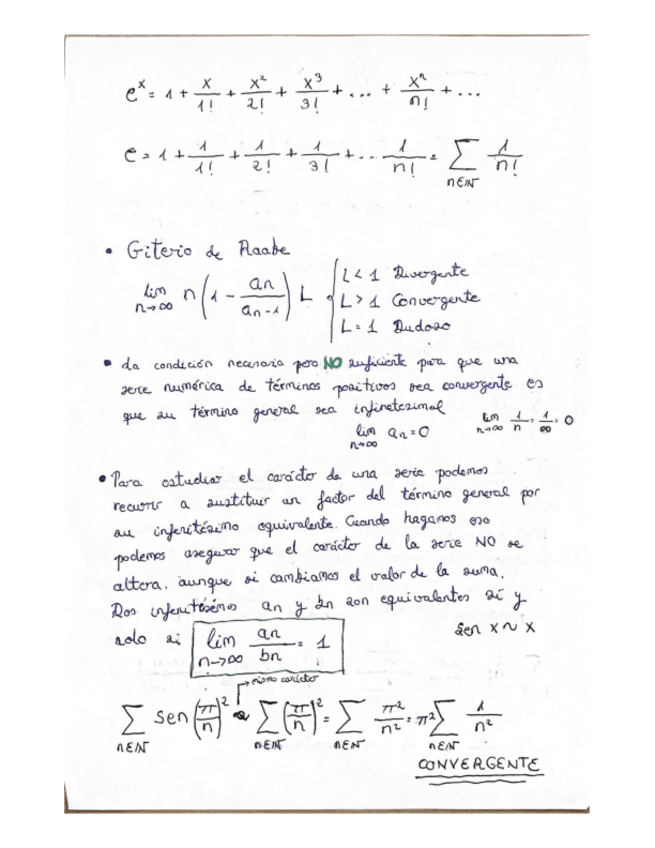 e^x = 1 + x/1! + x²/2! + x³/3! + ... + xⁿ/n! + ...
e = 1 + 1/1! + 1/2! + 1/3! + ... 1/n! = ∑_{n∈ℕ} 1/n!
• Criterio de Raabe
lim_{n→∞} n(1 - an/an-1) L { L < 1 Divergente
L > 1 Convergente
L = 1 Dudoso
• La condición necesaria pero NO suficiente para que una
serie numérica de términos positivos sea convergente es
que su término general sea infinitesimal
lim_{n→∞} an = 0 lim_{n→∞} 1/n = 1/∞ = 0
• Para estudiar el carácter de una serie podemos
recurrir a sustituir un factor del término general por
su infinitésimo equivalente. Cuando hagamos eso
podemos asegurar que el carácter de la serie NO se
altera, aunque si cambiamos el valor de la suma.
Dos infinitésimos an y bn son equivalentes sí y
solo si lim_{n→∞} an/bn = 1 Sen x ~ x
→ mismo carácter
∑_{n∈ℕ} Sen(π/n)² ~ ∑_{n∈ℕ} (π/n)² = ∑_{n∈ℕ} π²/n² = π² ∑_{n∈ℕ} 1/n²
CONVERGENTE